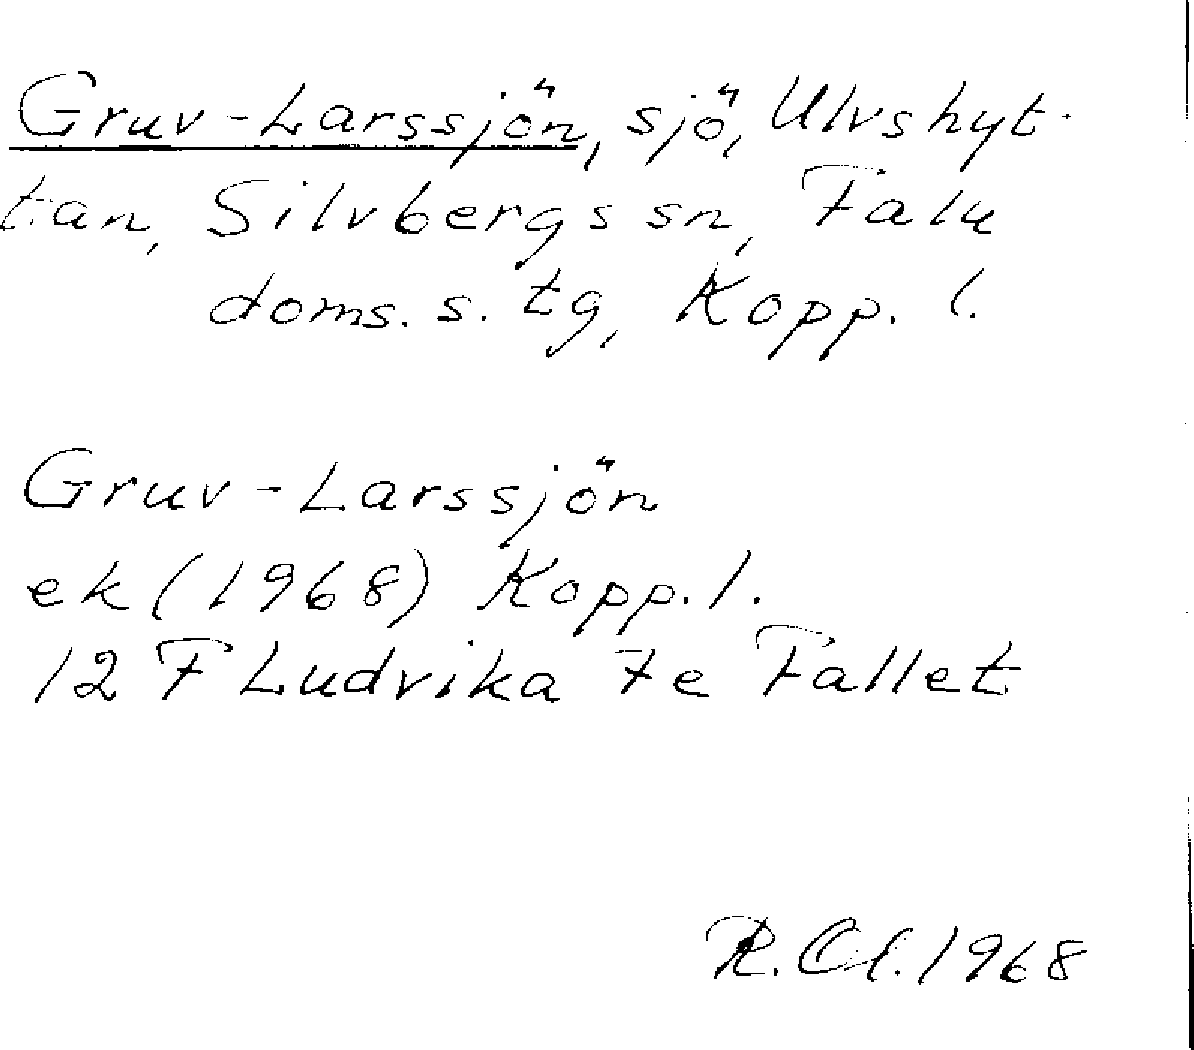 Gruv-Larssjön, sjö, Ulvshyt-
tan, Silvbergs sn, Falu
doms. s. tg, Kopp. l.
Gruv-Larssjön
ek (1968) Kopp. l.
12 F Ludvika 7e Fallet
R. Ol. 1968